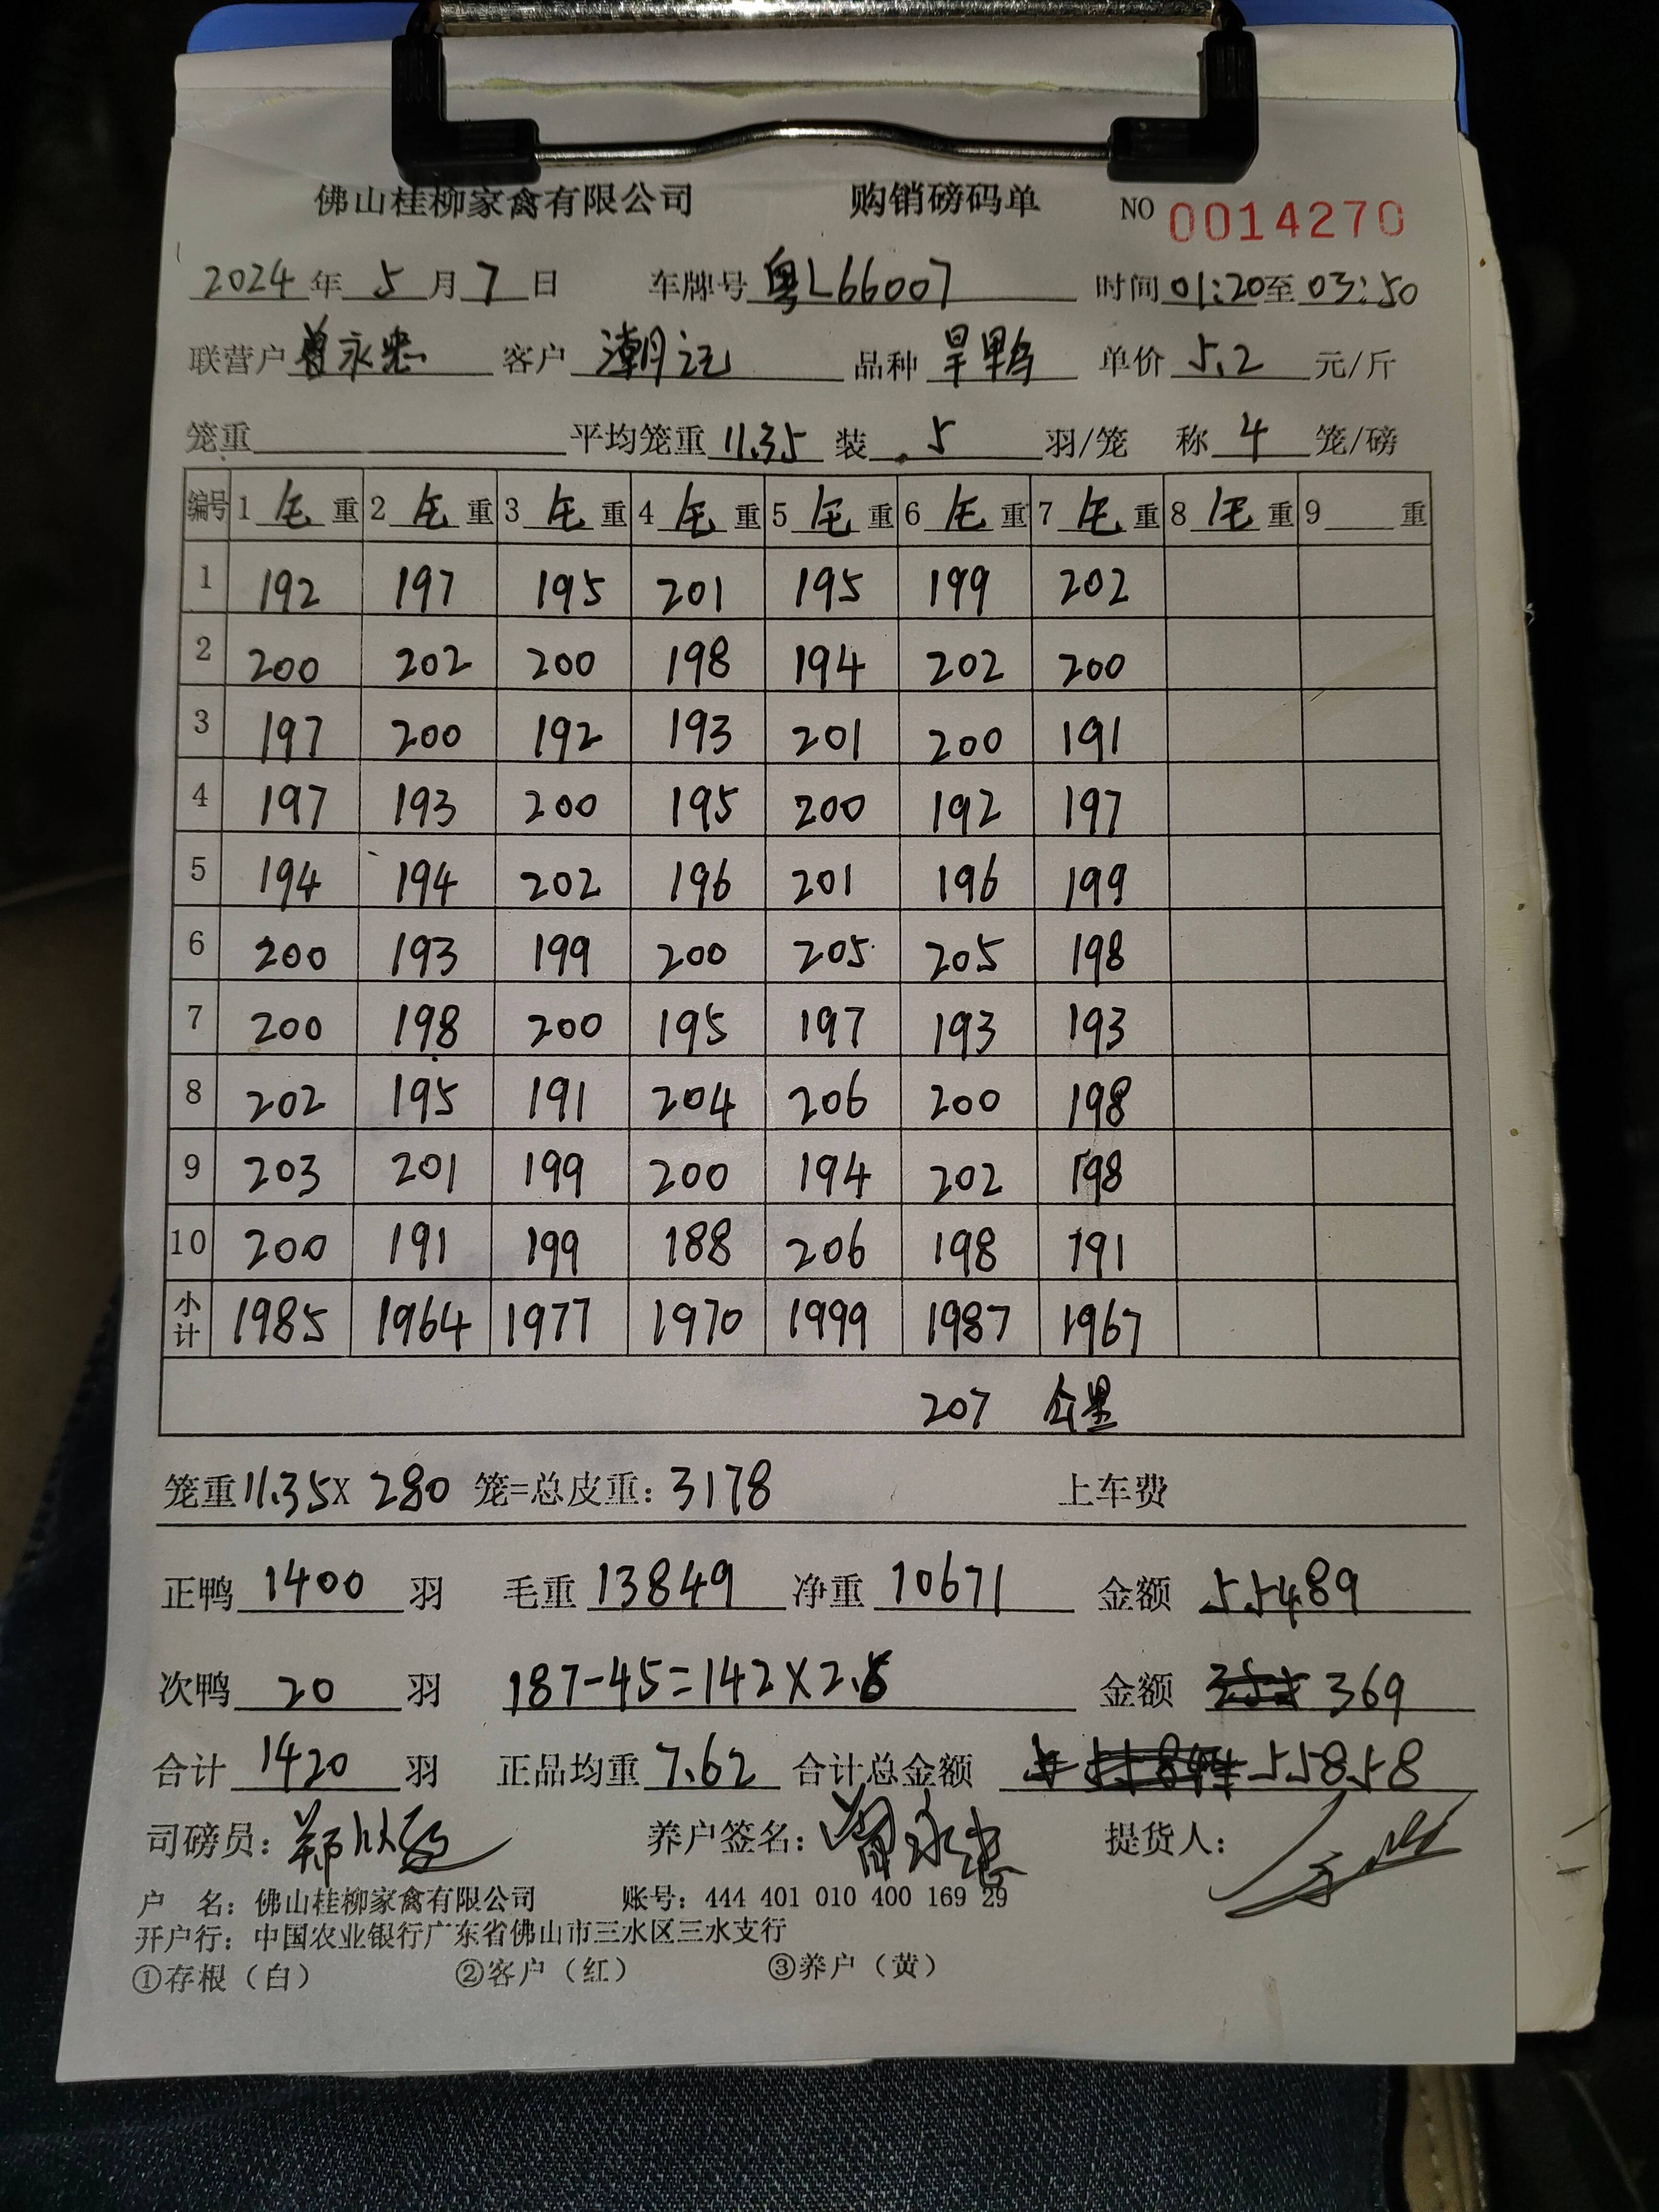 佛山桂柳家禽有限公司 购销磅码单 NO 0014270
2024年5月7日 车牌号 粤L66007 时间 01:20至03:50
联营户 曾永忠 客户 潮记 品种 旱鸭 单价 5.2 元/斤
笼重 平均笼重 11.35 装 5 羽/笼 称 4 笼/磅
编号 1 毛 重 2 毛 重 3 毛 重 4 毛 重 5 毛 重 6 毛 重 7 毛 重 8 毛 重 9 重
1 192 197 195 201 195 199 202
2 200 202 200 198 194 202 200
3 197 200 192 193 201 200 191
4 197 193 200 195 200 192 197
5 194 194 202 196 201 196 199
6 200 193 199 200 205 205 198
7 200 198 200 195 197 193 193
8 202 195 191 204 206 200 198
9 203 201 199 200 194 202 198
10 200 191 199 188 206 198 191
小计 1985 1964 1977 1970 1999 1987 1967
207 公里
笼重 11.35 X 280 笼=总皮重: 3178 上车费
正鸭 1400 羽 毛重 13849 净重 10671 金额 55489
次鸭 20 羽 187-45=142×2.6 金额 369
合计 1420 羽 正品均重 7.62 合计总金额 55858
司磅员: 养户签名: 曾永忠 提货人:
户 名: 佛山桂柳家禽有限公司 账号: 444 401 010 400 169 29
开户行: 中国农业银行广东省佛山市三水区三水支行
①存根（白） ②客户（红） ③养户（黄）